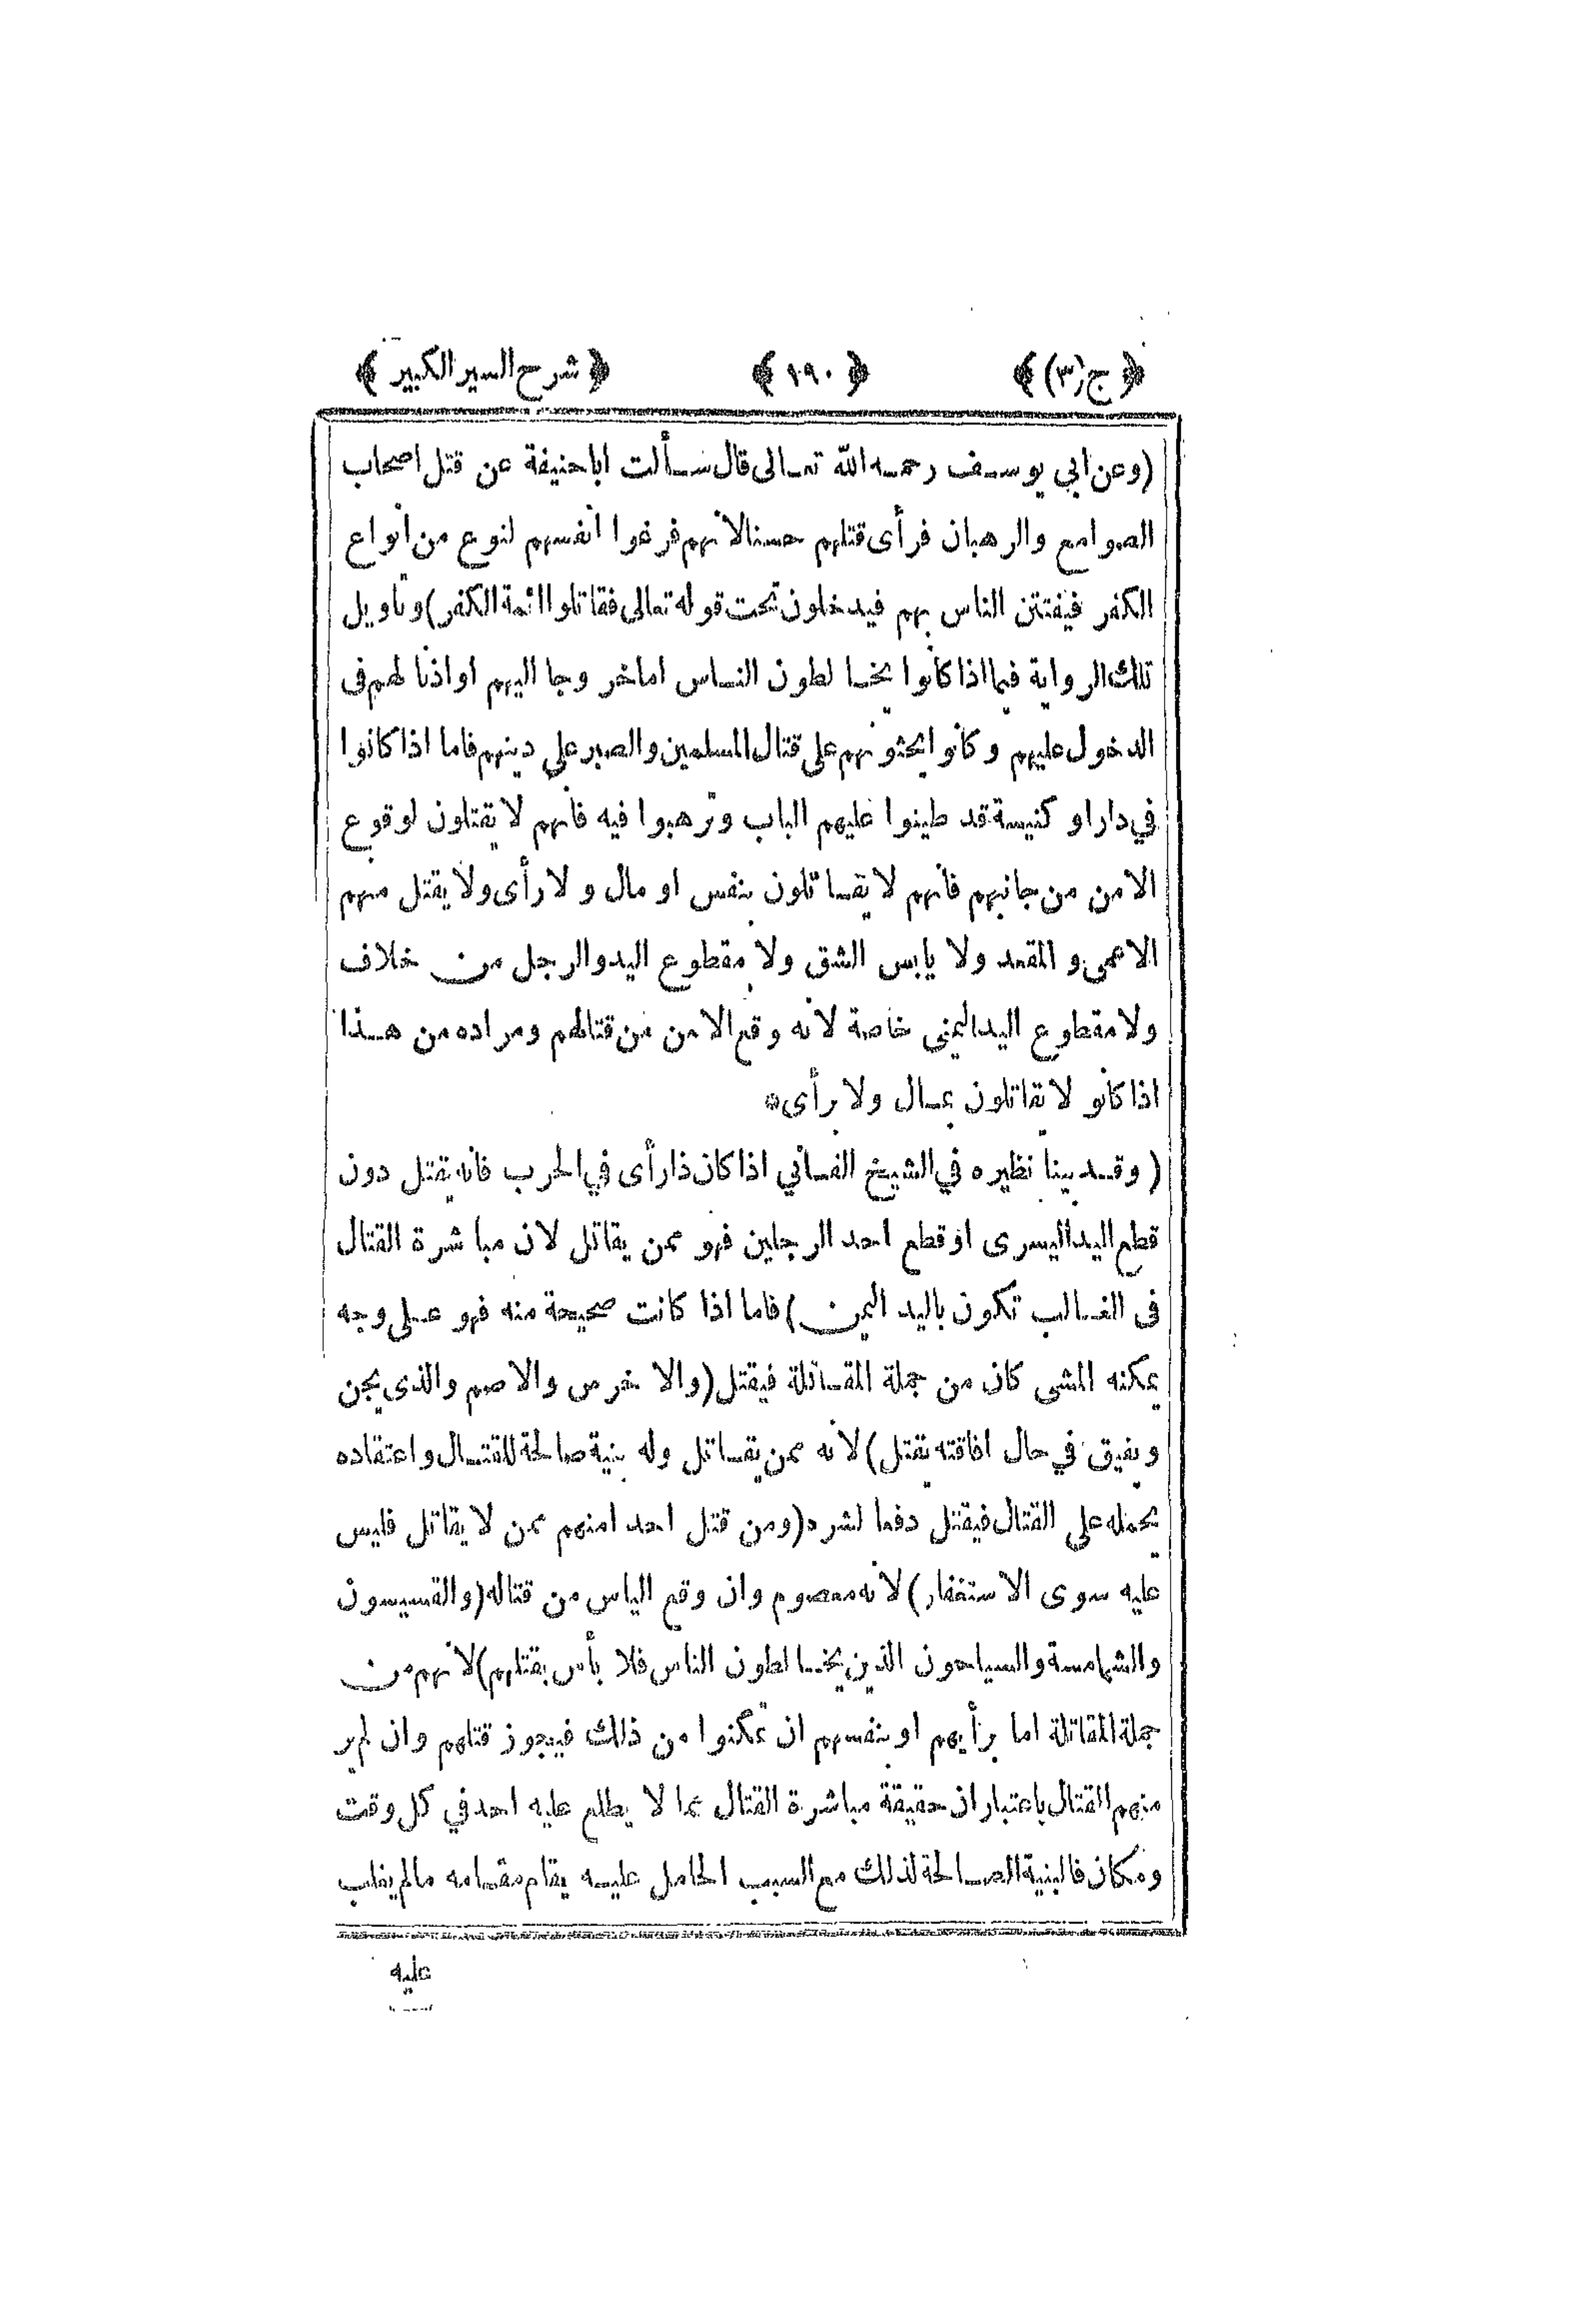 ﴿ ج (٣) ﴾ ﴿ ١٩٠ ﴾ ﴿ شرح السير الكبير ﴾
(وعن ابي يوسف رحمه الله تعالى قال سألت اباحنيفة عن قتل اصحاب
الصوامع والرهبان فرأى قتلهم حسنا لانهم فرغوا انفسهم لنوع من انواع
الكفر فيفتتن الناس بهم فيدخلون تحت قوله تعالى فقاتلوا ائمة الكفر) وتأويل
تلك الرواية فيما اذا كانوا يخالطون الناس اما خروجا اليهم او اذنا لهم فى
الدخول عليهم وكانوا يحثونهم على قتال المسلمين والصبر على دينهم فاما اذا كانوا
في دار او كنيسة قد طينوا عليهم الباب وترهبوا فيه فانهم لا يقتلون لوقوع
الامن من جانبهم فانهم لا يقاتلون بنفس او مال ولا رأى ولا يقتل منهم
الاعمى و المقعد ولا يابس الشق ولا مقطوع اليد والرجل من خلاف
ولا مقطوع اليد اليمنى خاصة لانه وقع الامن من قتالهم ومراده من هذا
اذا كانو لا يقاتلون بمال ولا برأى*
( وقد بينا نظيره في الشيخ الفاني اذا كان ذا رأى في الحرب فانه يقتل دون
قطع اليد اليسرى او قطع احد الرجلين فهو ممن يقاتل لان مباشرة القتال
فى الغالب تكون باليد اليمن) فاما اذا كانت صحيحة منه فهو على وجه
يمكنه المشى كان من جملة المقاتلة فيقتل (والاخرس والاصم والذى يجن
ويفيق في حال افاقته يقتل) لانه ممن يقاتل وله بنية صالحة للقتال واعتقاده
يحمله على القتال فيقتل دفعا لشره (ومن قتل احدا منهم ممن لا يقاتل فليس
عليه سوى الاستغفار) لانه معصوم وان وقع الياس من قتاله (والقسيسون
والشمامسة والسياحون الذين يخالطون الناس فلا بأس بقتلهم) لانهم من
جملة المقاتلة اما برأيهم او بنفسهم ان تمكنوا من ذلك فيجوز قتلهم وان لم ير
منهم القتال باعتبار ان حقيقة مباشرة القتال مما لا يطلع عليه احد في كل وقت
ومكان فالبنية الصالحة لذلك مع السبب الحامل عليه يقام مقامه مالم يغلب
عليه